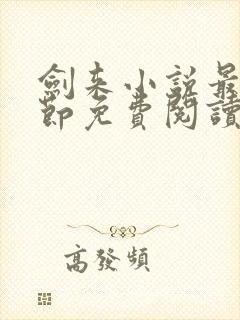 劍来小說最
節免費閱讀
高發頻